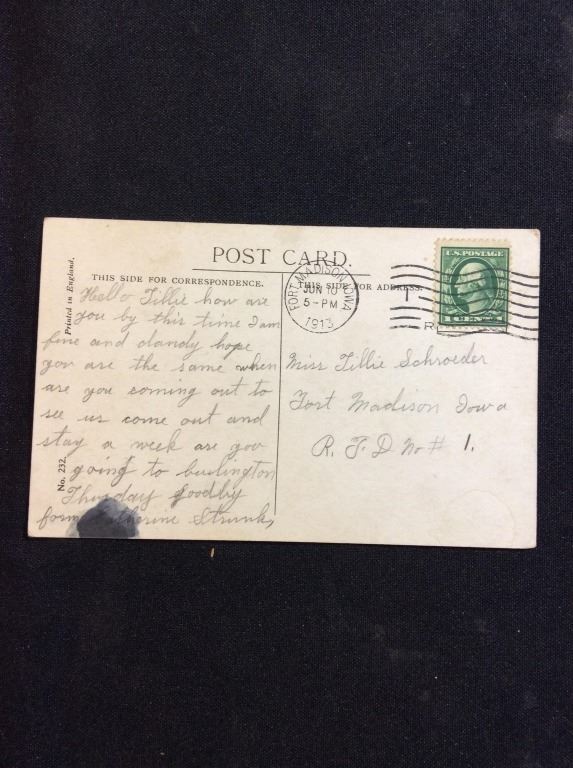 POST CARD.
THIS SIDE FOR CORRESPONDENCE.
THIS SIDE FOR ADDRESS.
Printed in England.
No. 232.
FORT MADISON IOWA
JUN 10
5-PM
1913
U.S. POSTAGE
1 CENT 1
Hello Tillie how are
you by this time I am
fine and dandy hope
you are the same when
are you coming out to
see us come out and
stay a week are you
going to burlington
Thursday goodby
form Strunk
Miss Tillie Schroeder
Fort Madison Iowa
R. F. D No # 1.